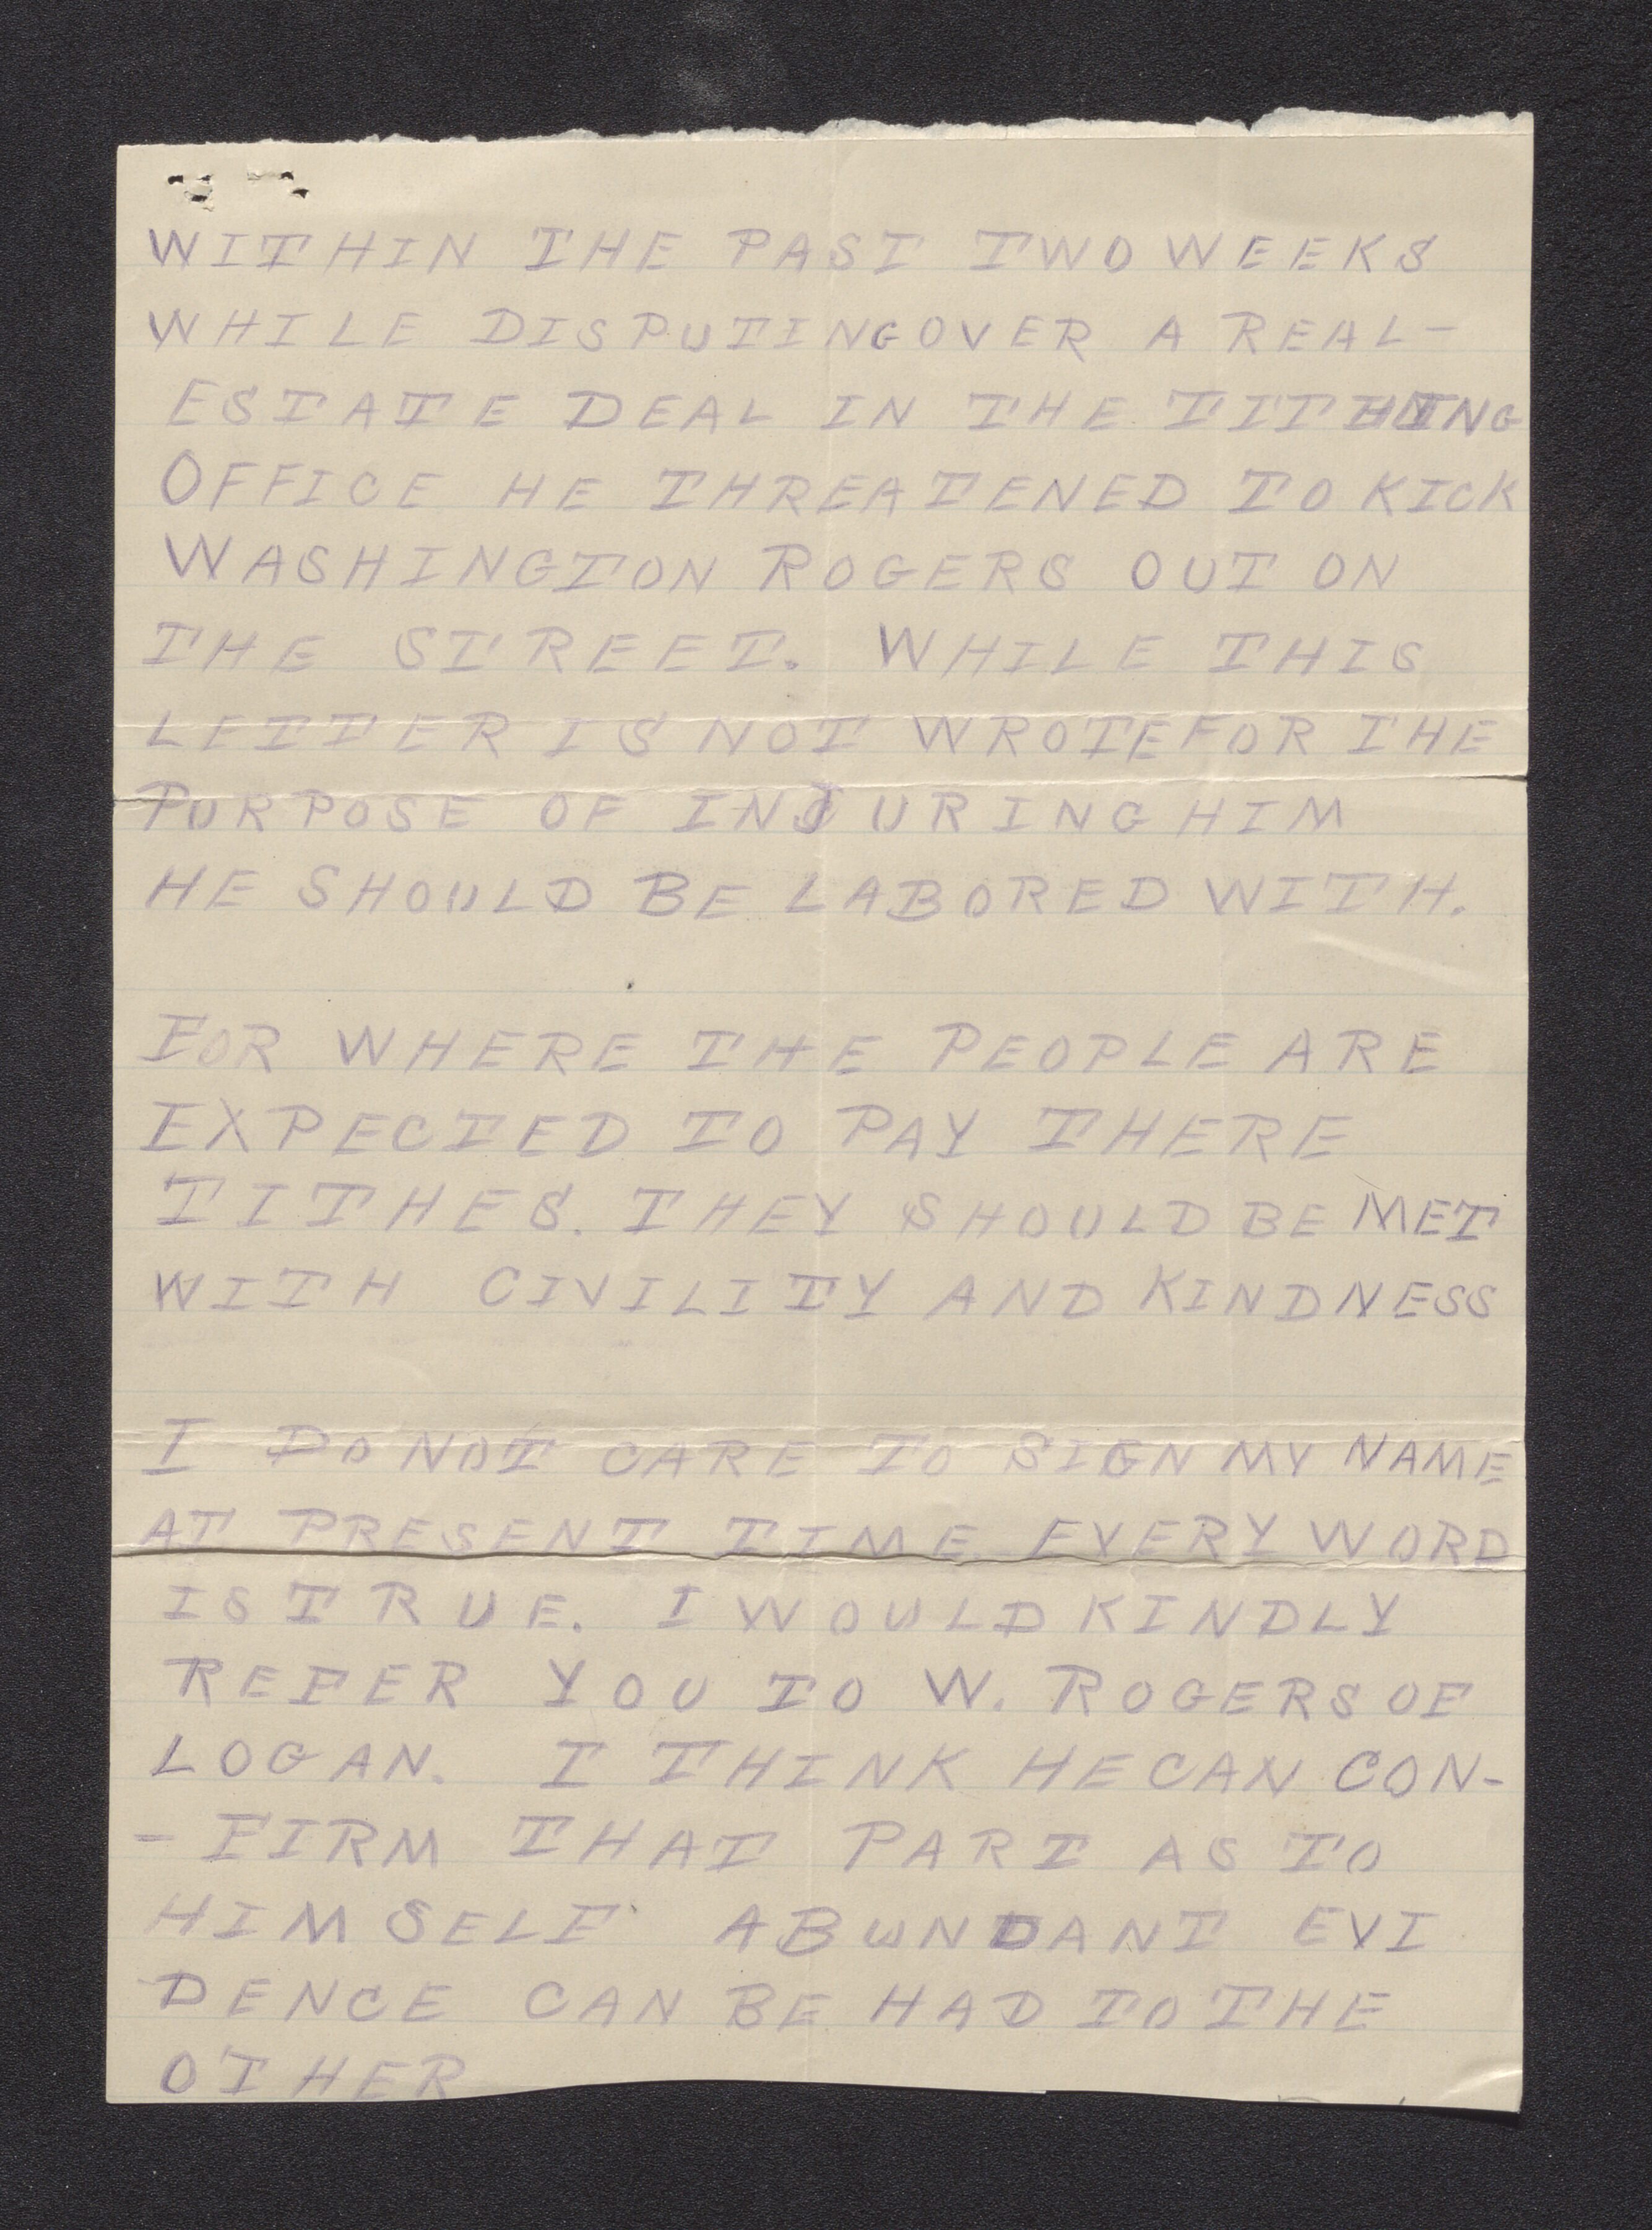 WITHIN THE PAST TWO WEEKS
WHILE DISPUTING OVER A REAL-
ESTATE DEAL IN THE TITHING
OFFICE HE THREATENED TO KICK
WASHINGTON ROGERS OUT ON
THE STREET. WHILE THIS
LETTER IS NOT WROTE FOR THE
PURPOSE OF INJURING HIM
HE SHOULD BE LABORED WITH.
FOR WHERE THE PEOPLE ARE
EXPECTED TO PAY THERE
TITHES. THEY SHOULD BE MET
WITH CIVILITY AND KINDNESS
I DO NOT CARE TO SIGN MY NAME
AT PRESENT TIME EVERY WORD
IS TRUE. I WOULD KINDLY
REFER YOU TO W. ROGERS OF
LOGAN. I THINK HE CAN CON-
- FIRM THAT PART AS TO
HIMSELF ABUNDANT EVI
DENCE CAN BE HAD TO THE
OTHER